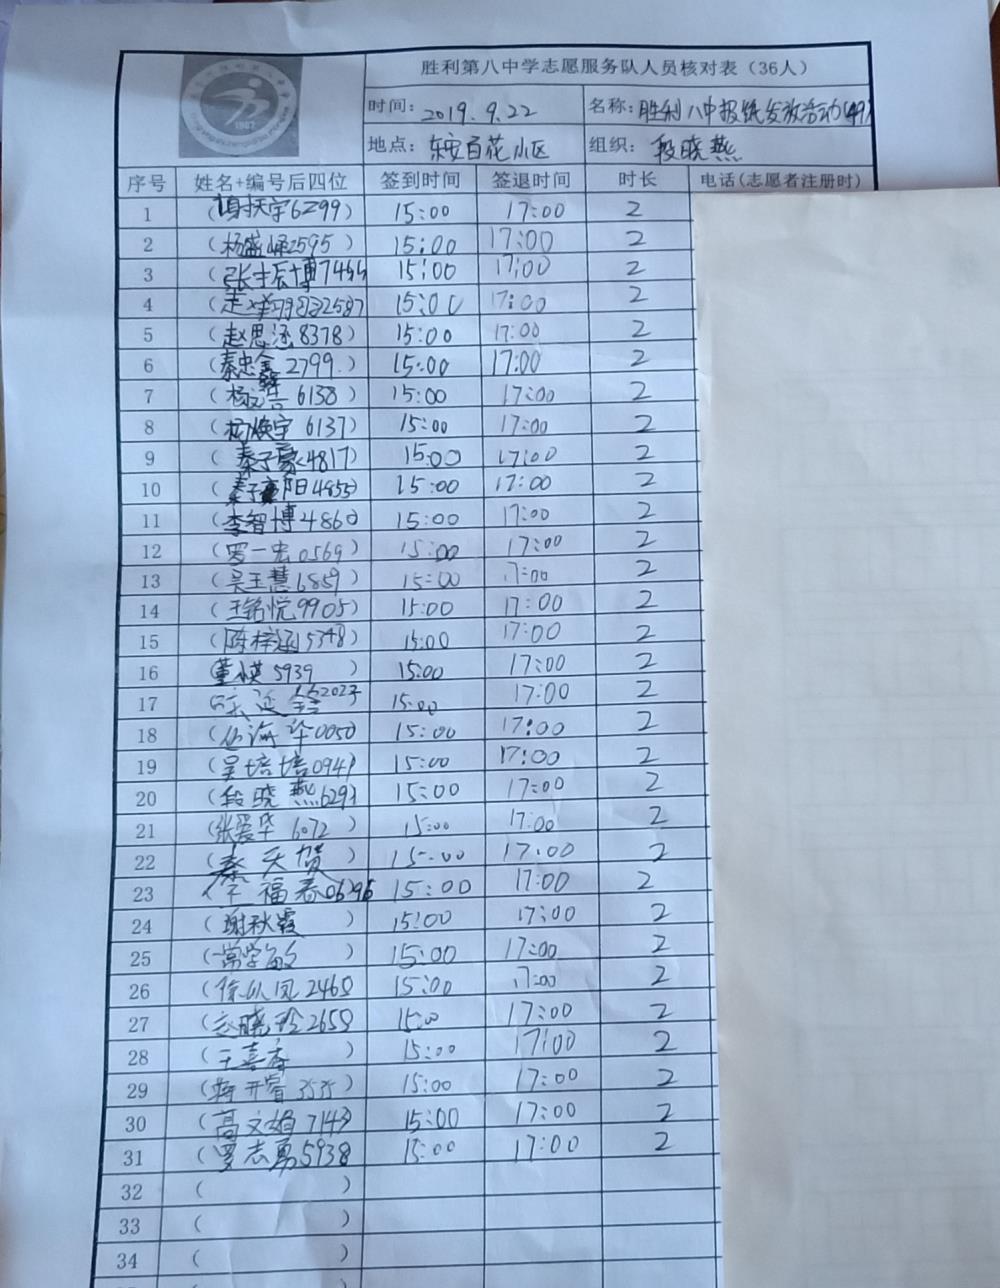 胜利第八中学志愿服务队人员核对表（36人）
时间：2019.9.22 名称：胜利八中报纸发放活动(49)
地点：东安百花小区 组织：段晓燕
序号 姓名+编号后四位 签到时间 签退时间 时长 电话(志愿者注册时)
1 ( 天宇6299) 15:00 17:00 2
2 (杨盛峰2595) 15:00 17:00 2
3 (张振博7455 15:00 17:00 2
4 ( 2587 15:00 17:00 2
5 (赵思涵8378) 15:00 17:00 2
6 (秦忠鑫2799.) 15:00 17:00 2
7 (杨 浩 6138) 15:00 17:00 2
8 (杨焕宇 6137) 15:00 17:00 2
9 (秦子豪4817) 15:00 17:00 2
10 (秦子 阳4855) 15:00 17:00 2
11 (李智博4860) 15:00 17:00 2
12 (罗一宏0569) 15:00 17:00 2
13 (吴玉慧6859) 15:00 17:00 2
14 (王铭悦9905) 15:00 17:00 2
15 (陈梓涵5348) 15:00 17:00 2
16 (董 5939 ) 15:00 17:00 2
17 2023 15:00 17:00 2
18 ( 海华0050) 15:00 17:00 2
19 (吴培培0941) 15:00 17:00 2
20 (段晓燕6291 15:00 17:00 2
21 (张爱华 6072 ) 15:00 17:00 2
22 (秦天贺 ) 15:00 17:00 2
23 (李福春0696 15:00 17:00 2
24 (谢秋霞 ) 15:00 17:00 2
25 (常学敏 ) 15:00 17:00 2
26 (徐从凤2468 15:00 17:00 2
27 (赵晓玲2658 15:00 17:00 2
28 (王喜香 ) 15:00 17:00 2
29 (蒋开睿 3535) 15:00 17:00 2
30 (高文娟7143) 15:00 17:00 2
31 (罗志勇5938 15:00 17:00 2
32 ( )
33 ( )
34 ( )